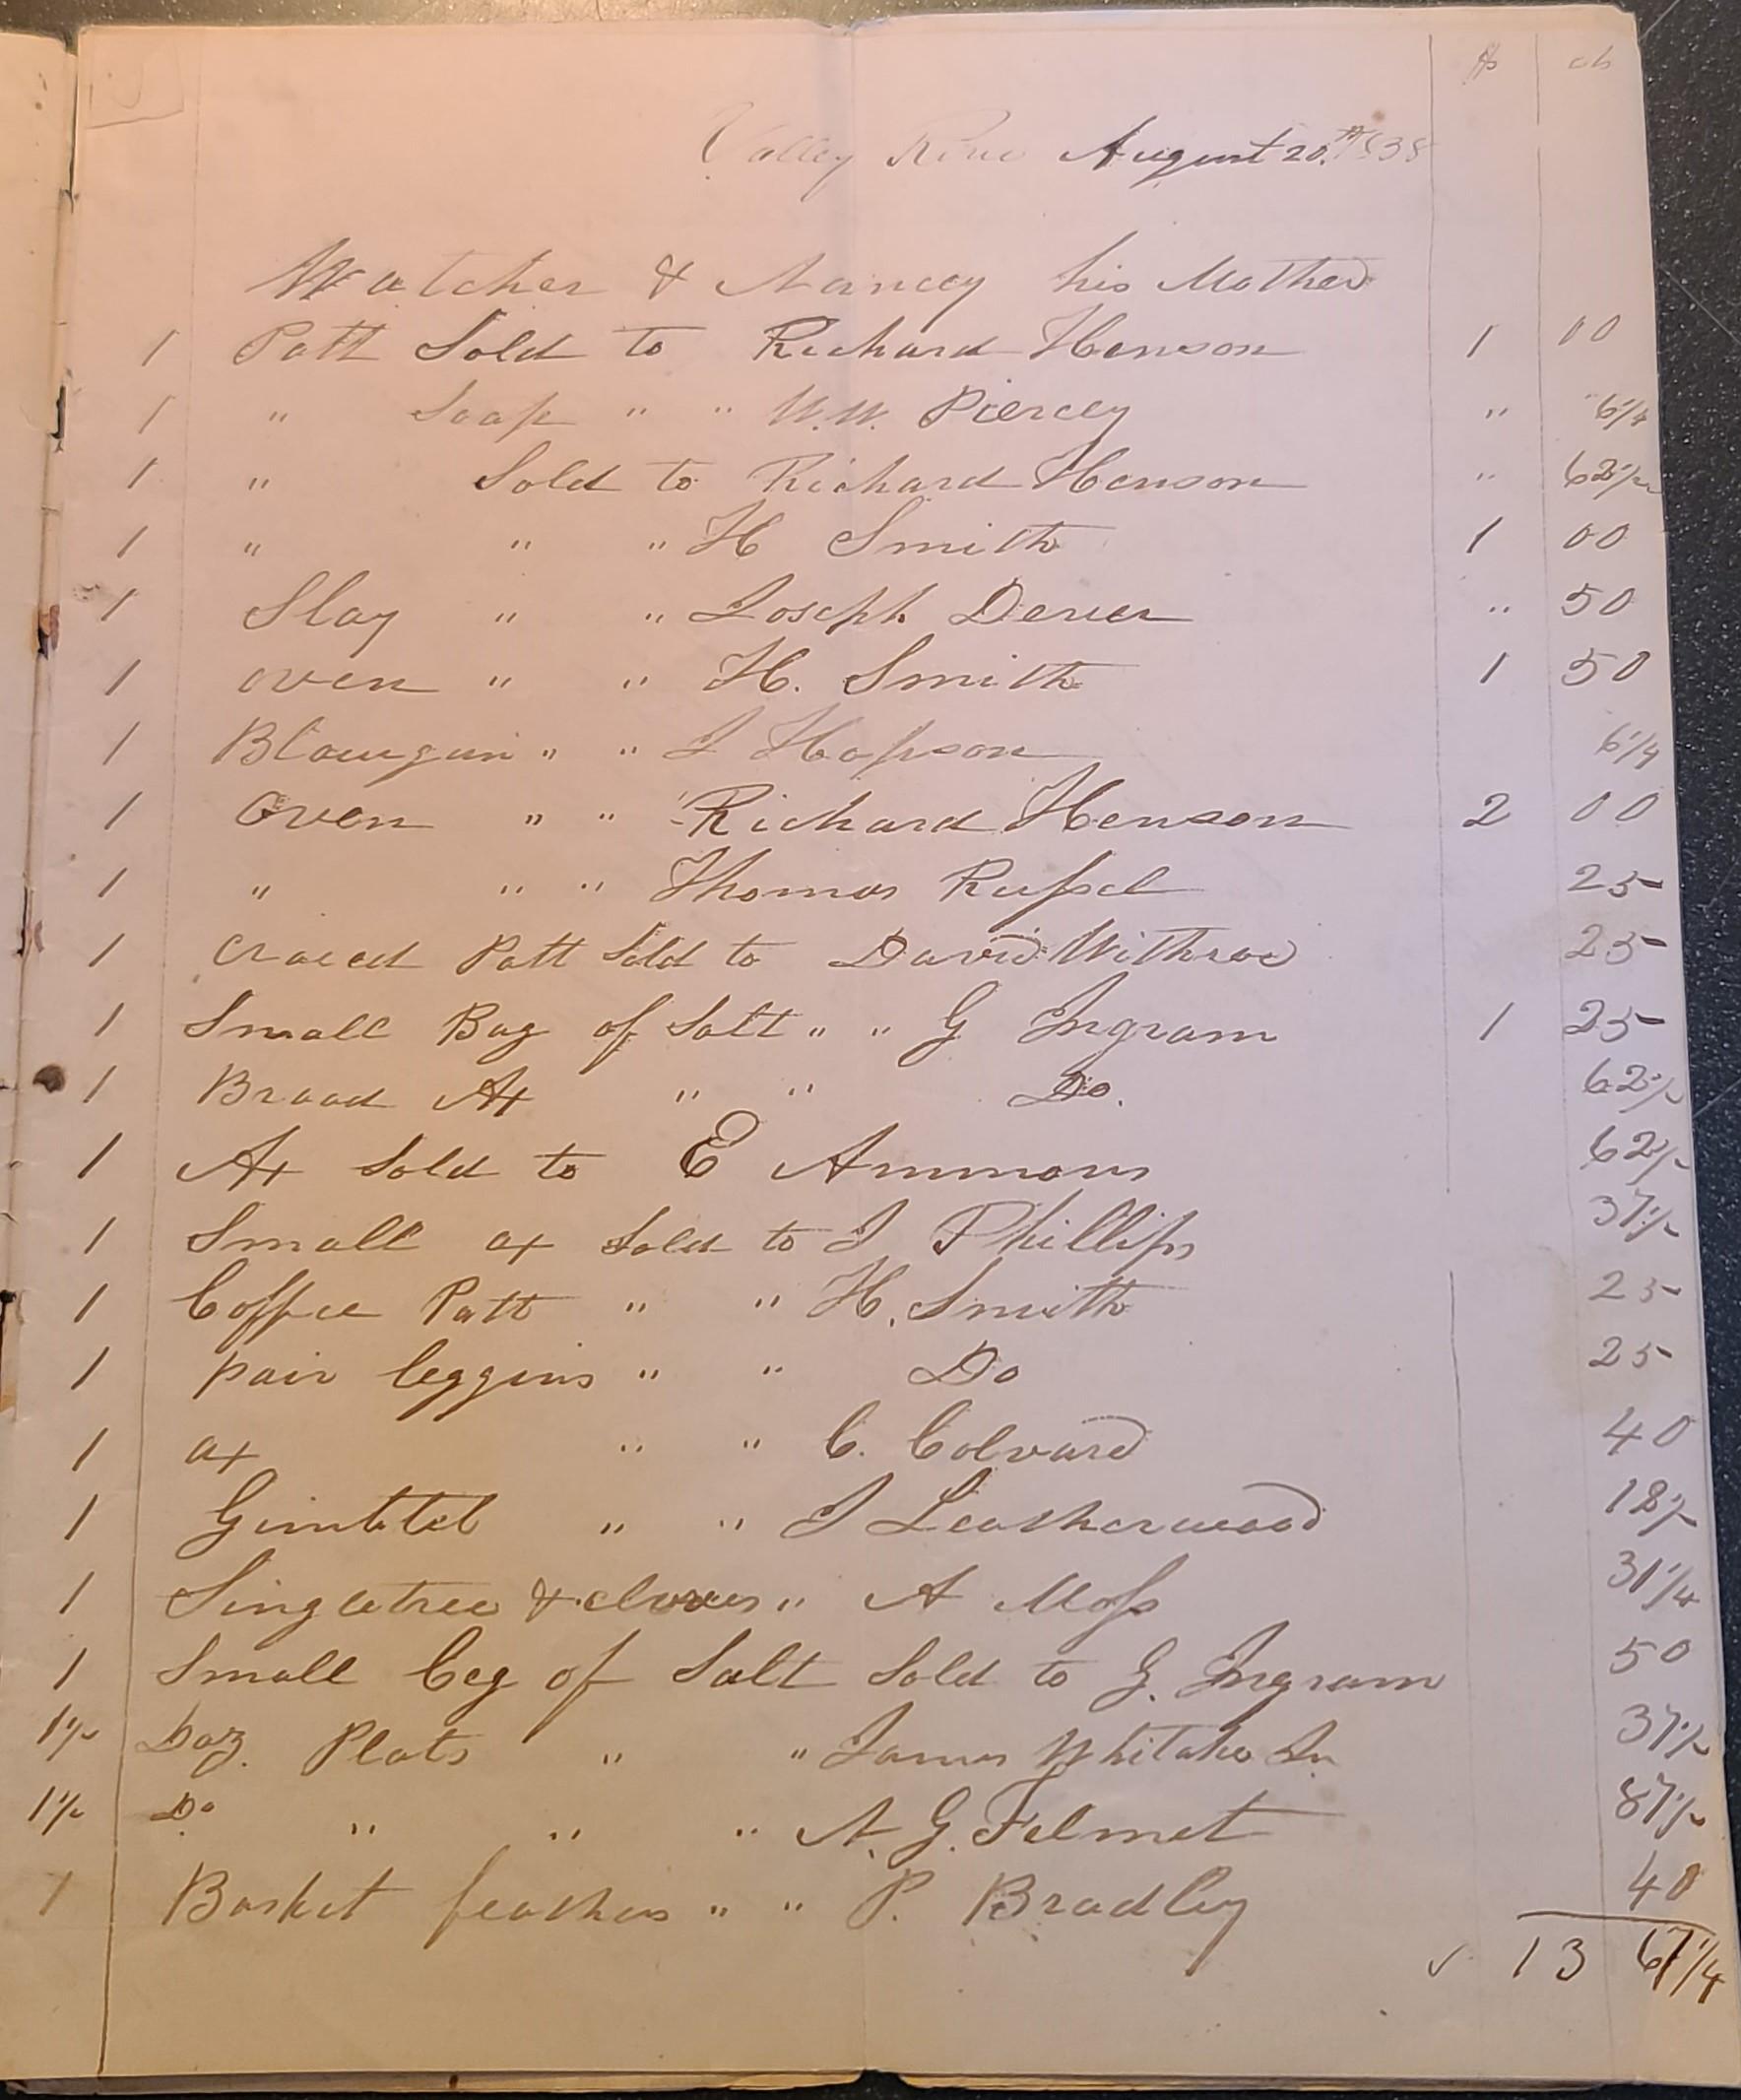 $ cts
Valley River August 20th 1838
Watcher & Nancey his Mother
1 Pott Sold to Richard Henson 1 00
1 " Soap " " W.W. Piercey " 6 1/4
1 " Sold to Richard Henson " 62 1/2
1 " " " H Smith 1 00
1 Slay " " Joseph Dever " 50
1 oven " " H. Smith 1 50
1 Blowgun " " J Hopson 6 1/4
1 Oven " " Richard Henson 2 00
1 " " " Thomas Russel 25
1 craced Pott Sold to David Withrow 25
1 Small Bag of Salt " " G Ingram 1 25
1 Broad Ax " " Do. 62 1/2
1 Ax Sold to E Ammons 62 1/2
1 Small ax Sold to J Phillips 37 1/2
1 Coffee Pott " " H. Smith 25
1 pair leggins " " Do 25
1 ax " " C. Colvard 40
1 Gimblet " " J Leatherwood 12 1/2
1 Singletree & " A Moss 31 1/4
1 Small Ceg of Salt Sold to G. Ingram 50
1 1/2 Doz. Plats " " James Whitaker Jr 37 1/2
1 1/2 Do " " " A. G. Felmet 87 1/2
1 Basket feathers " " P. Bradley 40
13 67 1/4